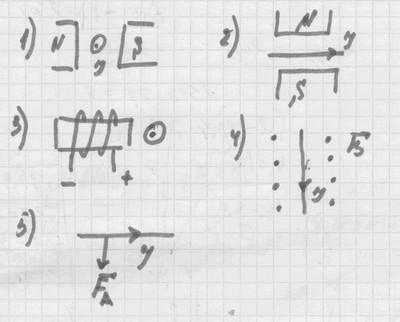 1) N S
у
2) N
у
S
3)
- +
4) B
у
5)
у
F_A